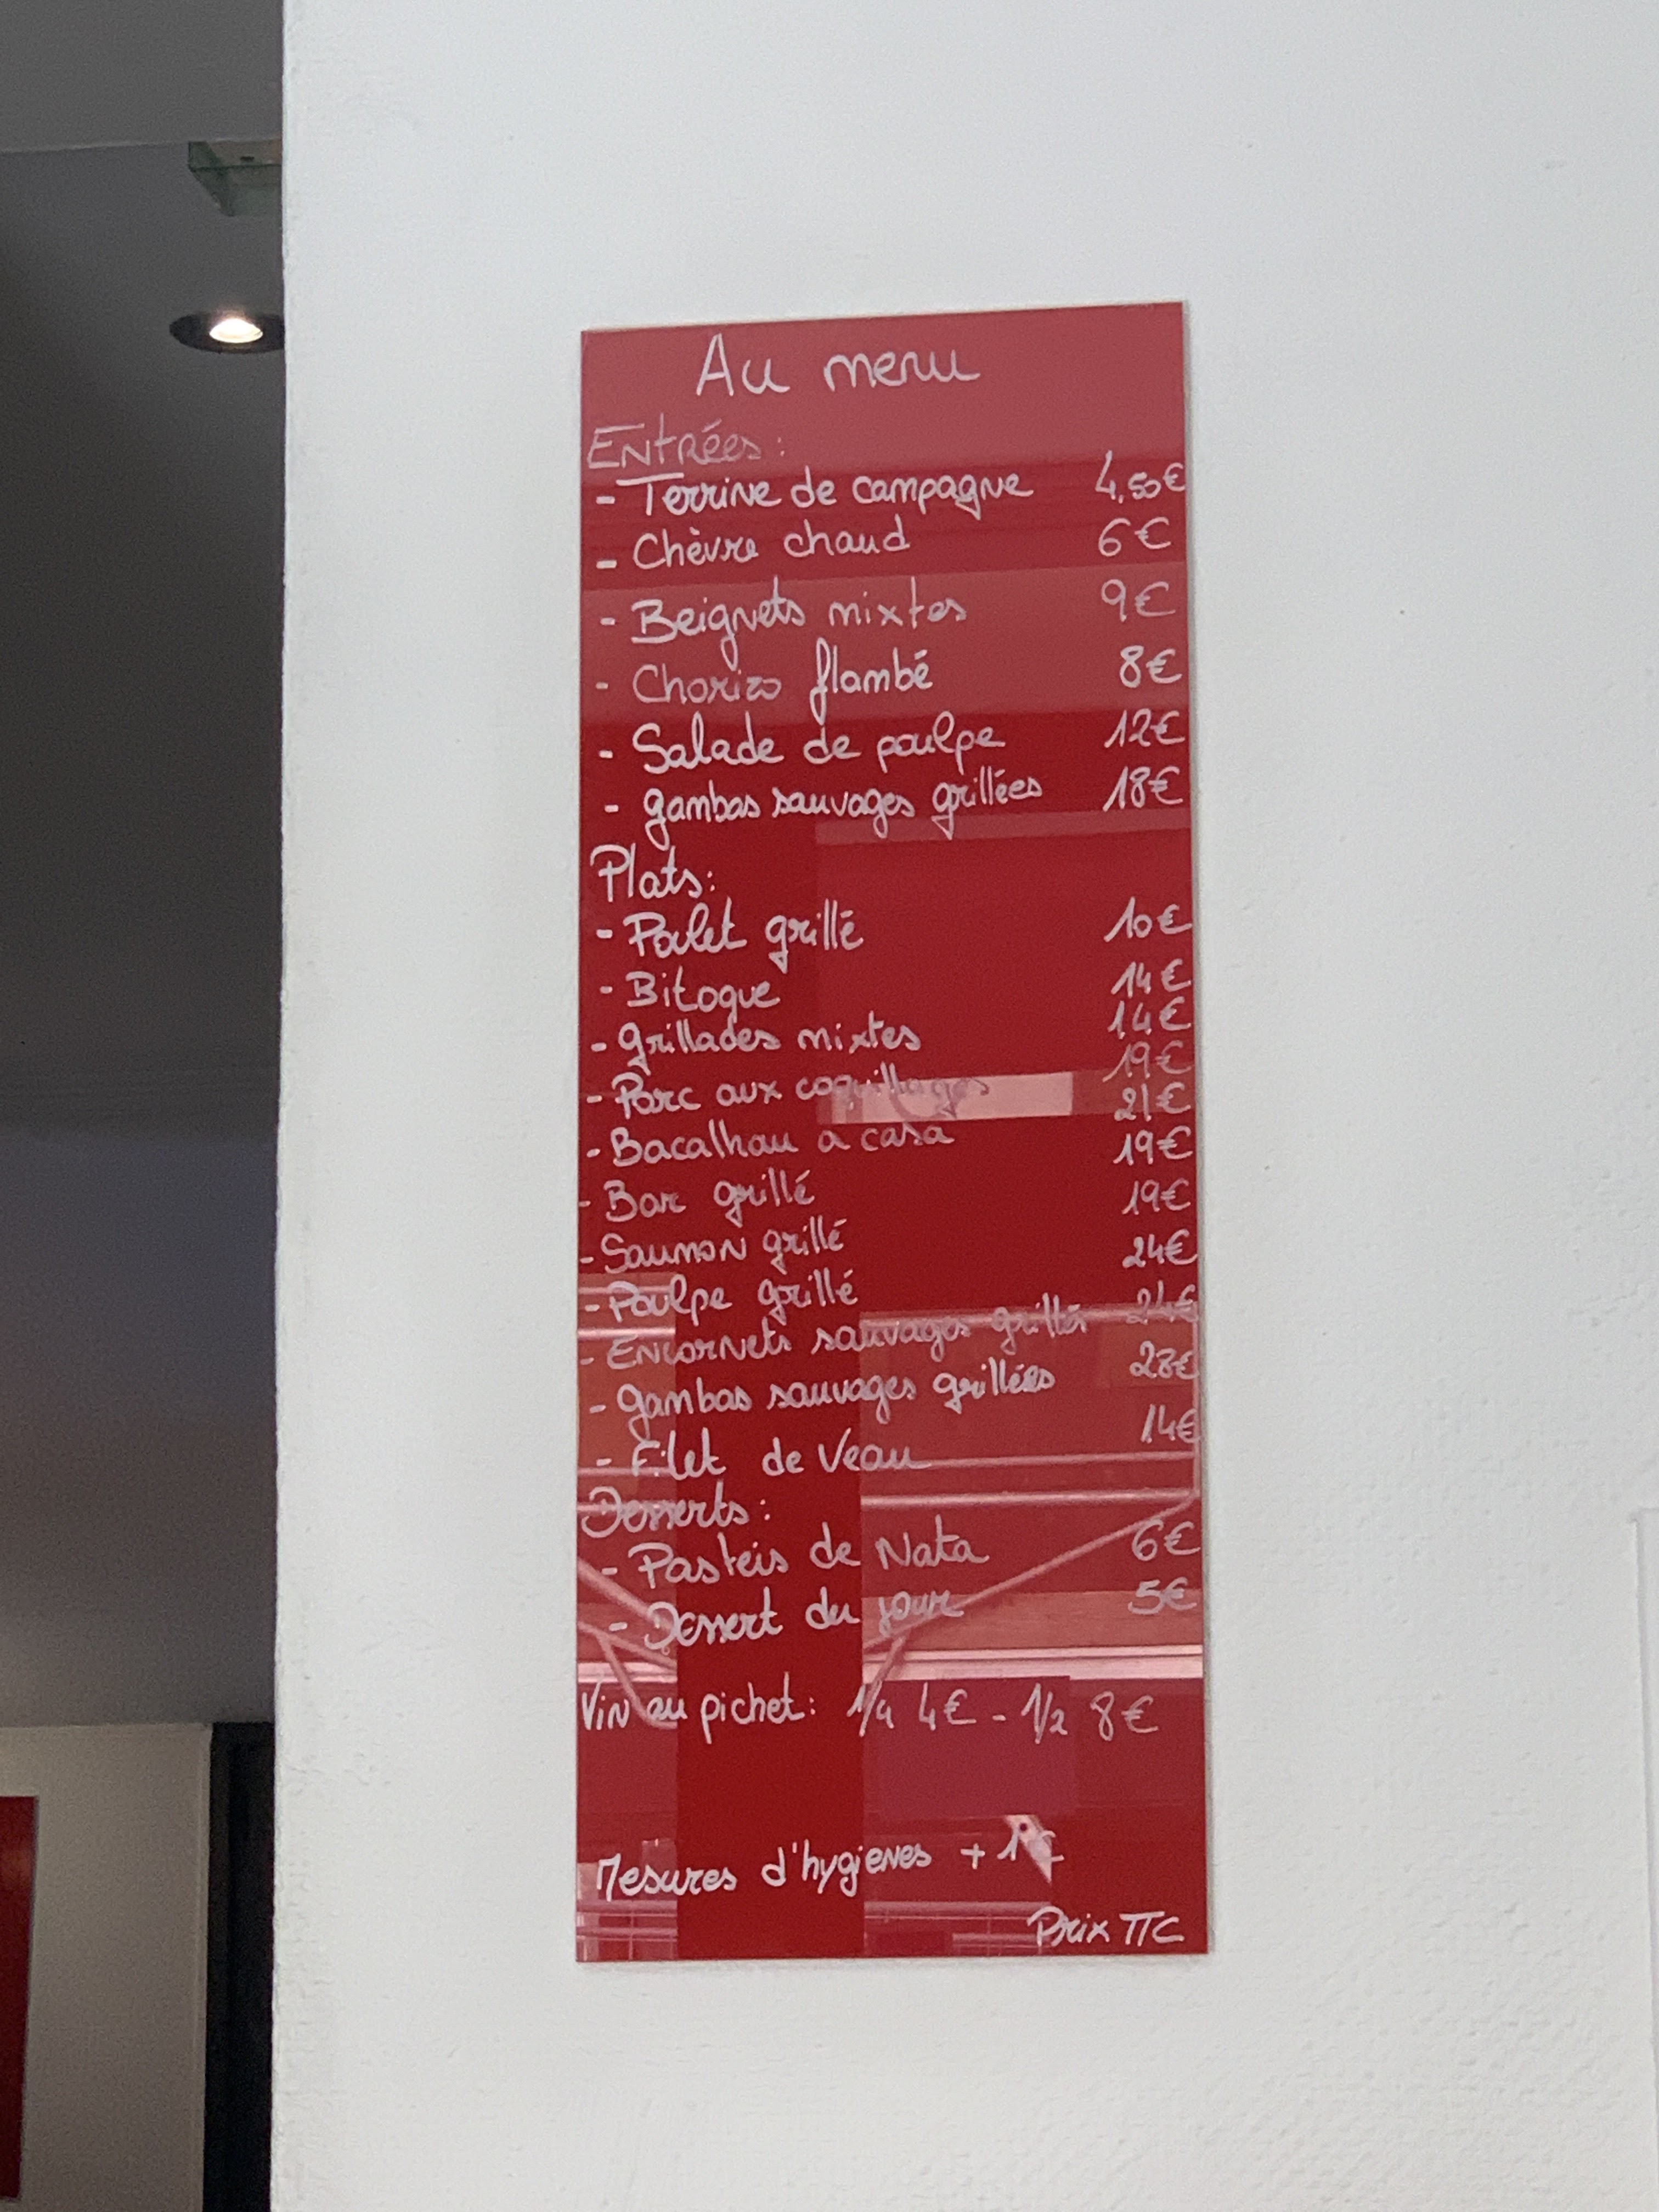 Au menu
Entrées :
- Terrine de campagne 4,50€
- Chèvre chaud 6€
- Beignets mixtes 9€
- Chorizo flambé 8€
- Salade de poulpe 12€
- gambas sauvages grillées 18€
Plats :
- Poulet grillé 10€
- Bitoque 14€
- grillades mixtes 14€
- Porc aux coquillages 19€
- Bacalhau a casa 21€
- Bar grillé 19€
- Saumon grillé 19€
- Poulpe grillé 24€
- Encornets sauvages grillés 24€
- gambas sauvages grillées 28€
- Filet de Veau 14€
Desserts :
- Pasteis de Nata 6€
- Dessert du jour 5€
Vin au pichet : 1/4 4€ - 1/2 8€
Mesures d'hygienes + 1€
Prix TTC